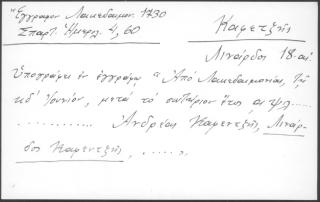 "Έγγραφον Λακεδαιμον. 1730
Σπαρτ. Ημερολ. 4, 60
Καφετζῆς
Λινάρδος 18. αἰ.
Ὑπογράφει ἐν ἐγγράφῳ "Ἀπὸ Λακεδαιμονίας, Τῇ
κδ' Ἰουνίου, μετὰ τὸ σωτήριον ἔτος, αψλ.....
............. Ἀνδρέας Καφεντζῆς, Λινάρ-
δος Καφεντζῆς, ......,